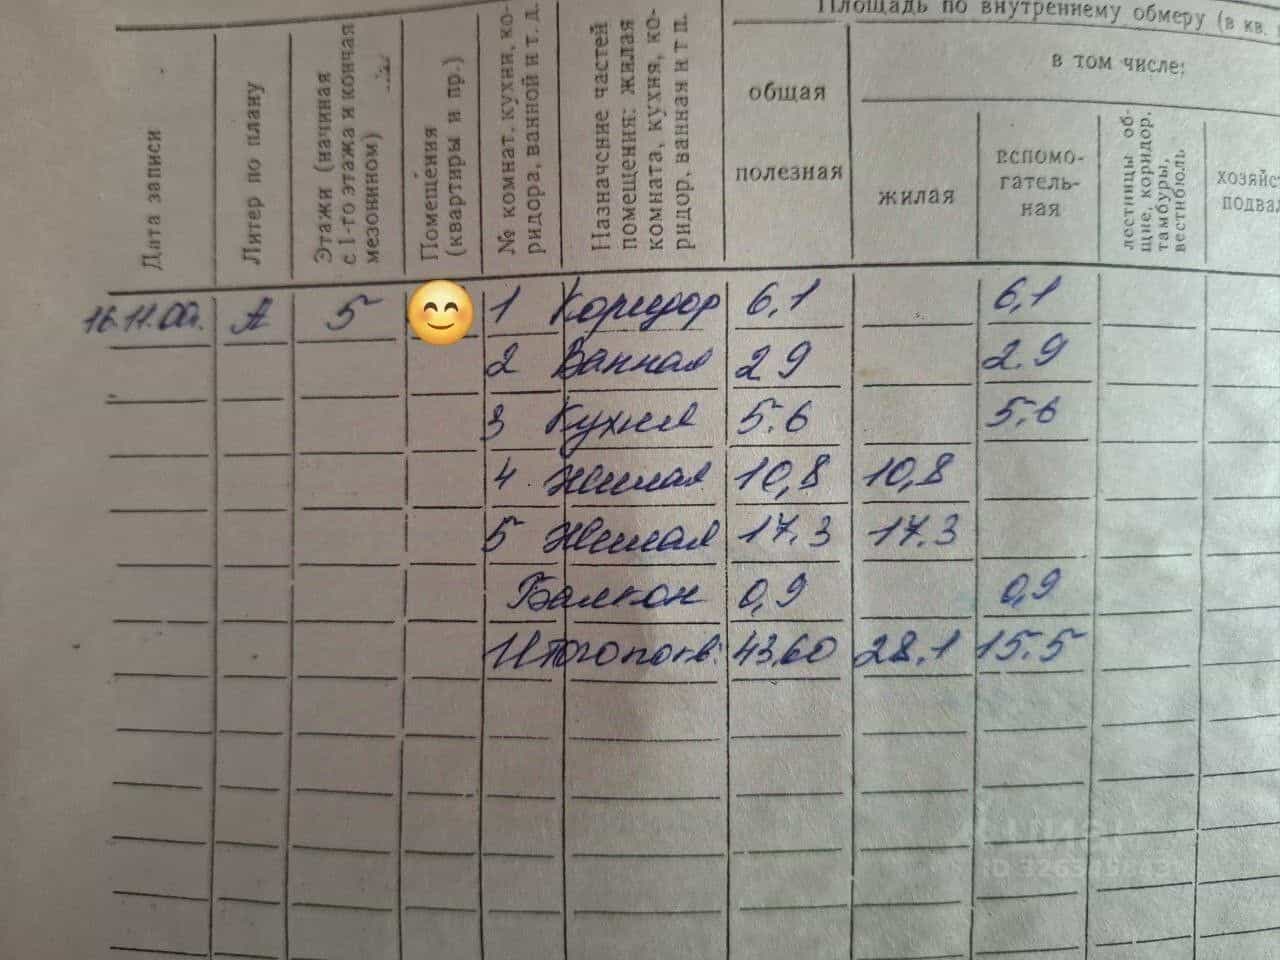 Площадь по внутреннему обмеру (в кв.
в том числе:
Дата записи
Литер по плану
Этажи (начиная
с 1-го этажа и кончая
мезонином)
Помещения
(квартиры и пр.)
№ комнат, кухни, ко-
ридора, ванной и т. д.
Назначение частей
помещения: жилая
комната, кухня, ко-
ридор, ванная и т п.
общая
полезная
жилая
вспомо-
гатель-
ная
лестницы об-
щие, коридор,
тамбуры,
вестибюль
хозяйс
подва
16.11.00. А 5 1 Коридор 6,1 6,1
2 Ванная 2 9 2.9
3 Кухня 5.6 5.6
4 Жилая 10,8 10,8
5 Жилая 17.3 17.3
Балкон 0,9 0,9
Итого по кв: 43,60 28.1 15.5